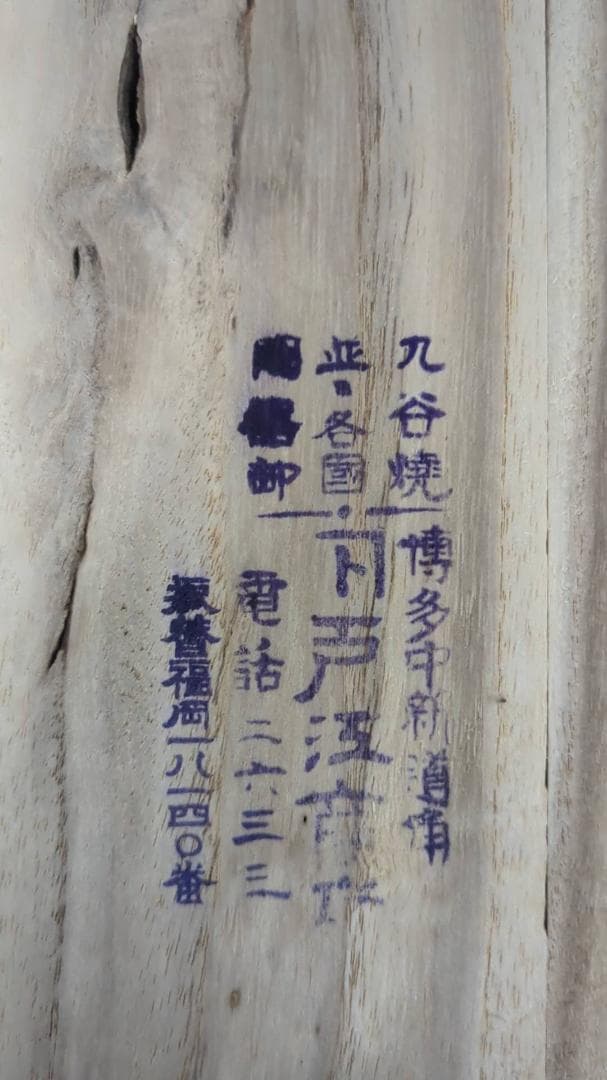 九谷燒
並ニ各國
陶器卸
博多中新道角
戸江商店
電話二六三三
振替福岡一八一四〇番